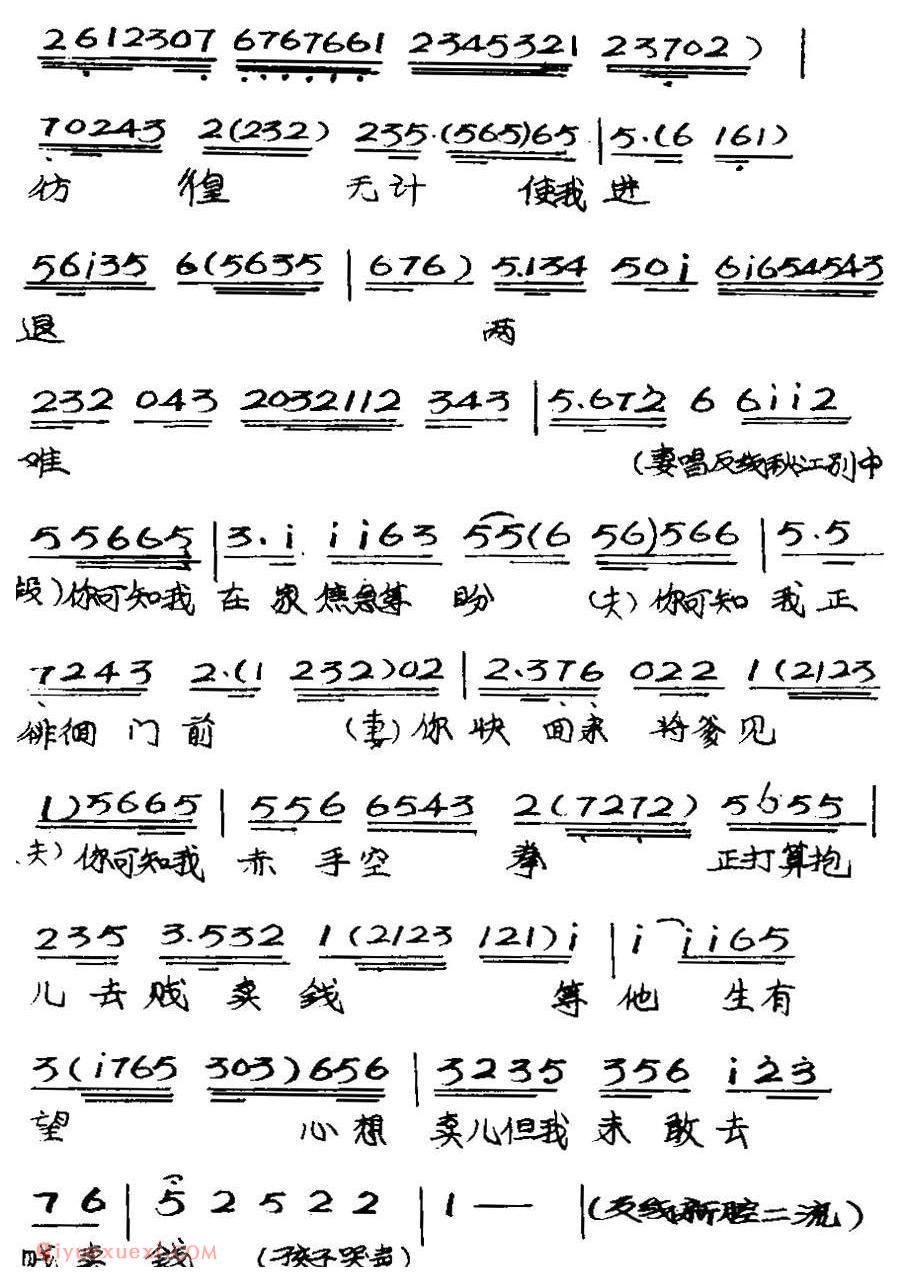 2612307 6767661 2345321 23702 ) |
70243 2(232) 235·(565)65 | 5·(6 161)
彷 徨 无计 使我 进
56i35 6(5635 | 676) 5.134 50i 6i654543
退 两
232 043 2032112 343 | 5.672 6 6ii2
难 (妻唱反线秋江别中
55665 | 3·i ii63 55(6 56)566 | 5·5
段)你可知我 在 家 焦急等 盼 (夫)你可知 我 正
7243 2·(1 232)02 | 2·376 022 1(2123
徘徊 门 前 (妻)你 快 回来 将爹见
1)5665 | 556 6543 2(7272) 5655 |
夫)你可知我 赤 手空 拳 正打算抱
235 3.532 1(2123 121)i | i ii65
儿 去 贱 卖 钱 等 他 生有
3(i765 303)656 | 3235 356 i23
望 心想 卖儿但我 未 敢 去
76 | 5 2 5 2 2 | 1 — — | (反线新腔二流)
贱卖 钱 (孩子哭声)
iyuexuexi.com